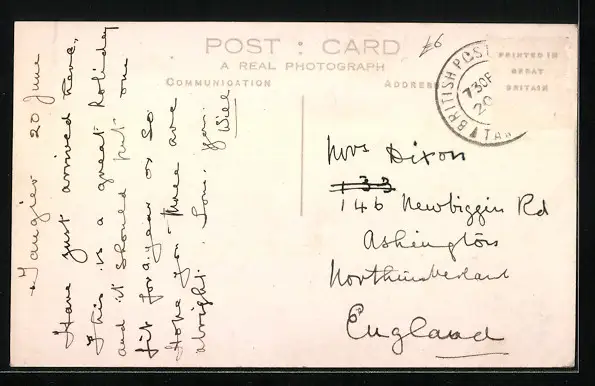 POST : CARD
A REAL PHOTOGRAPH
COMMUNICATION
ADDRESS
PRINTED IN
GREAT
BRITAIN
£6
BRITISH POST
730P
20
TAN
Tangier 20 June
Have just arrived here.
This is a great holiday
and it should put one
fit for a year or so
Hope you three are
alright. Love, you.
Will
Mrs Dixon
133
146 Newbiggin Rd
Ashington
Northumberland
England